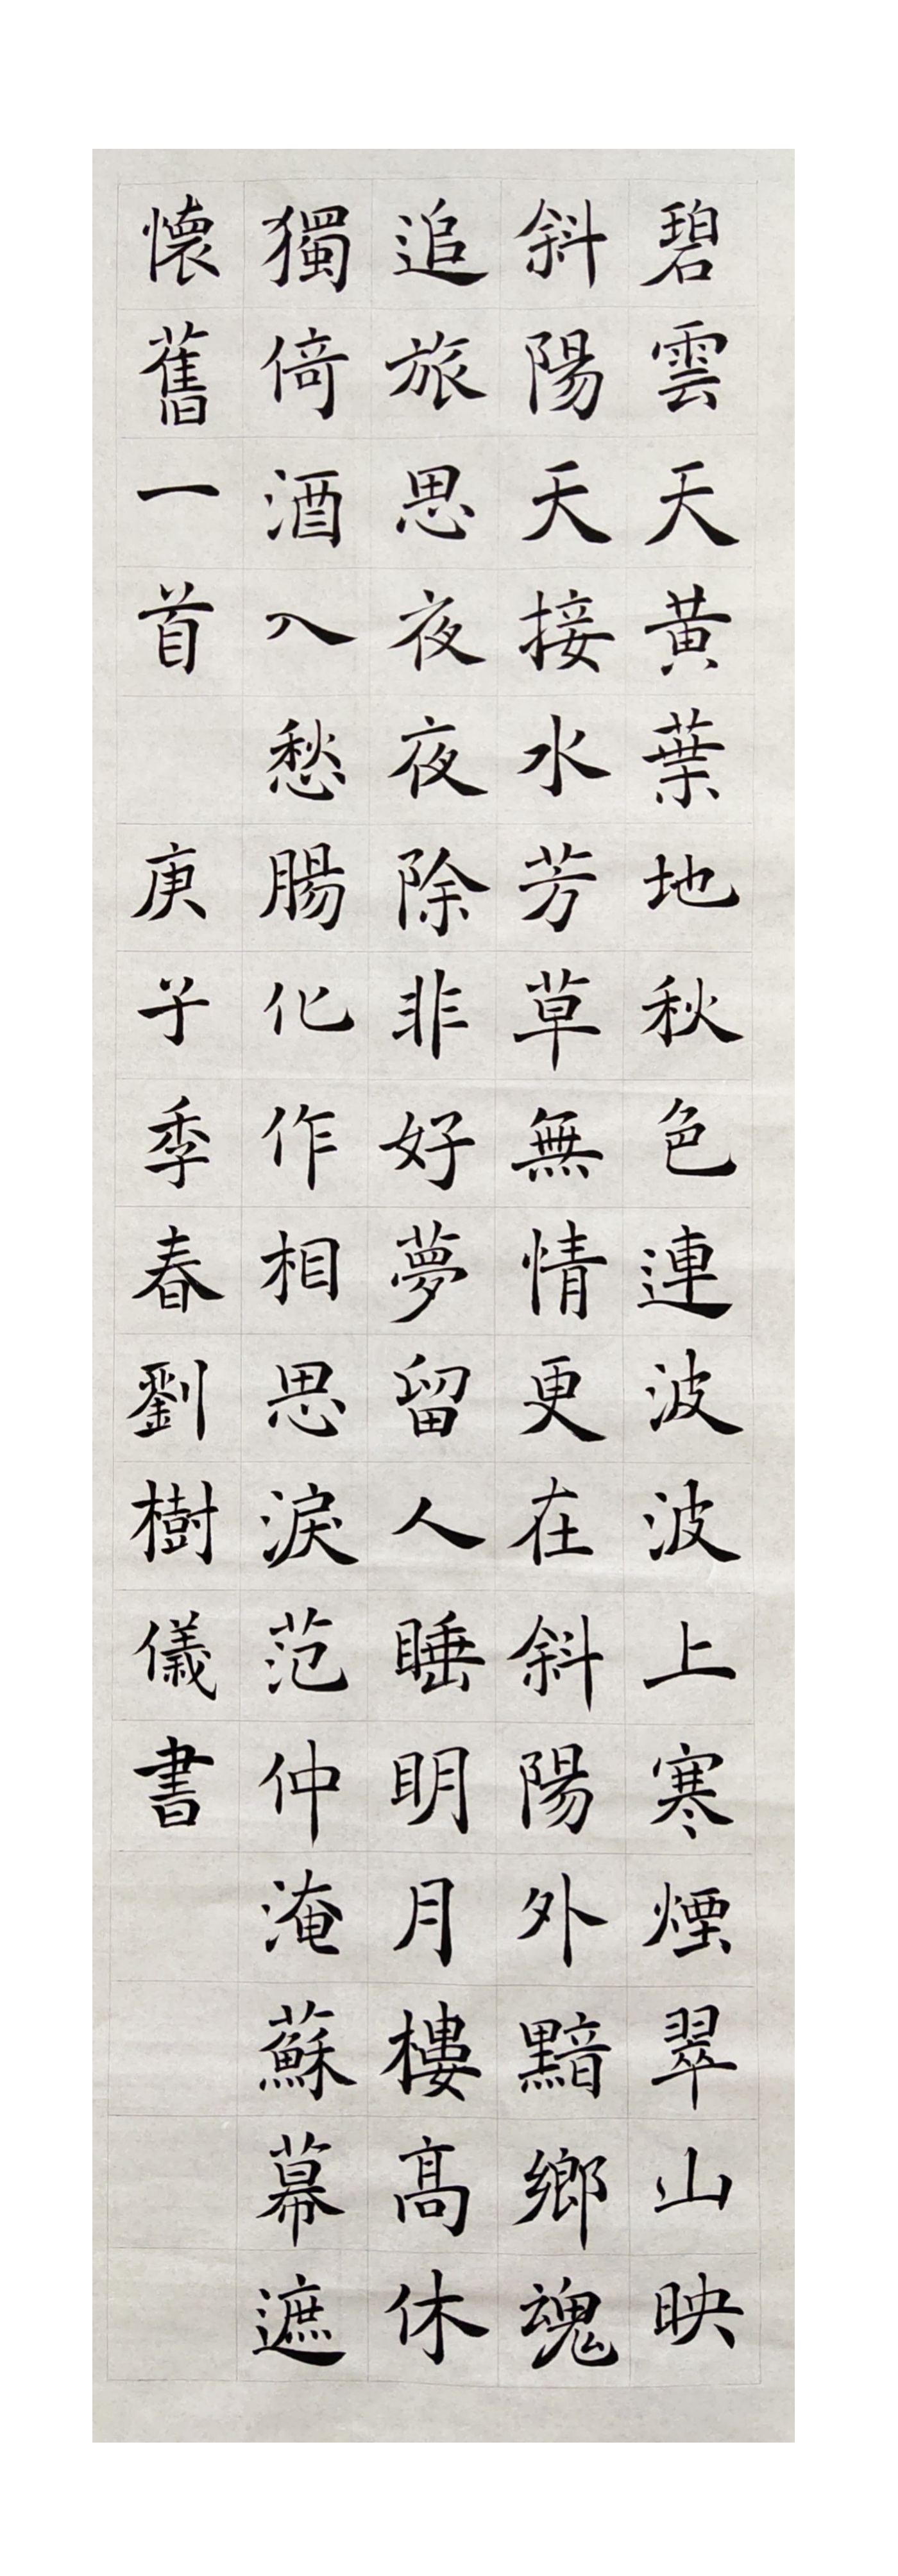 碧雲天黃葉地秋色連波波上寒煙翠山映
斜陽天接水芳草無情更在斜陽外黯鄉魂
追旅思夜夜除非好夢留人睡明月樓高休
獨倚酒入愁腸化作相思淚范仲淹蘇幕遮
懷舊一首 庚子季春劉樹儀書